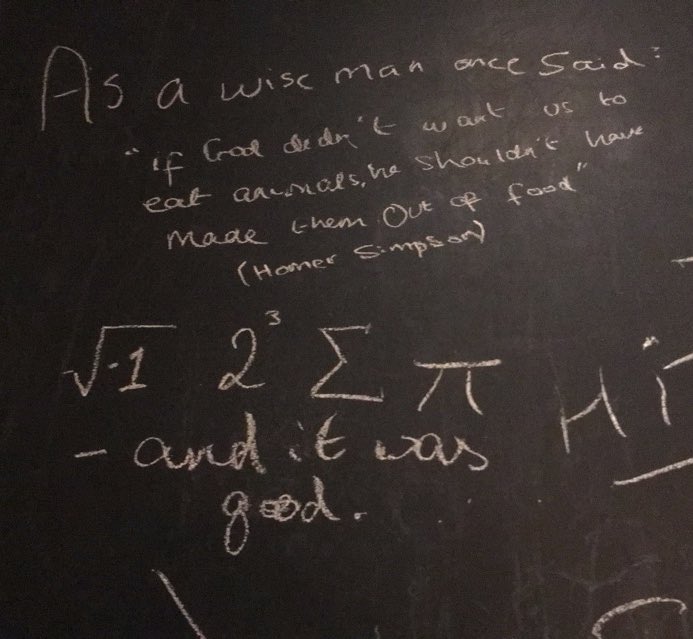 As a wise man once said:
"if God didn't want us to
eat animals, he shouldn't have
made them out of food"
(Homer Simpson)
√-1 2³ Σ π
- and it was
good.
Hi